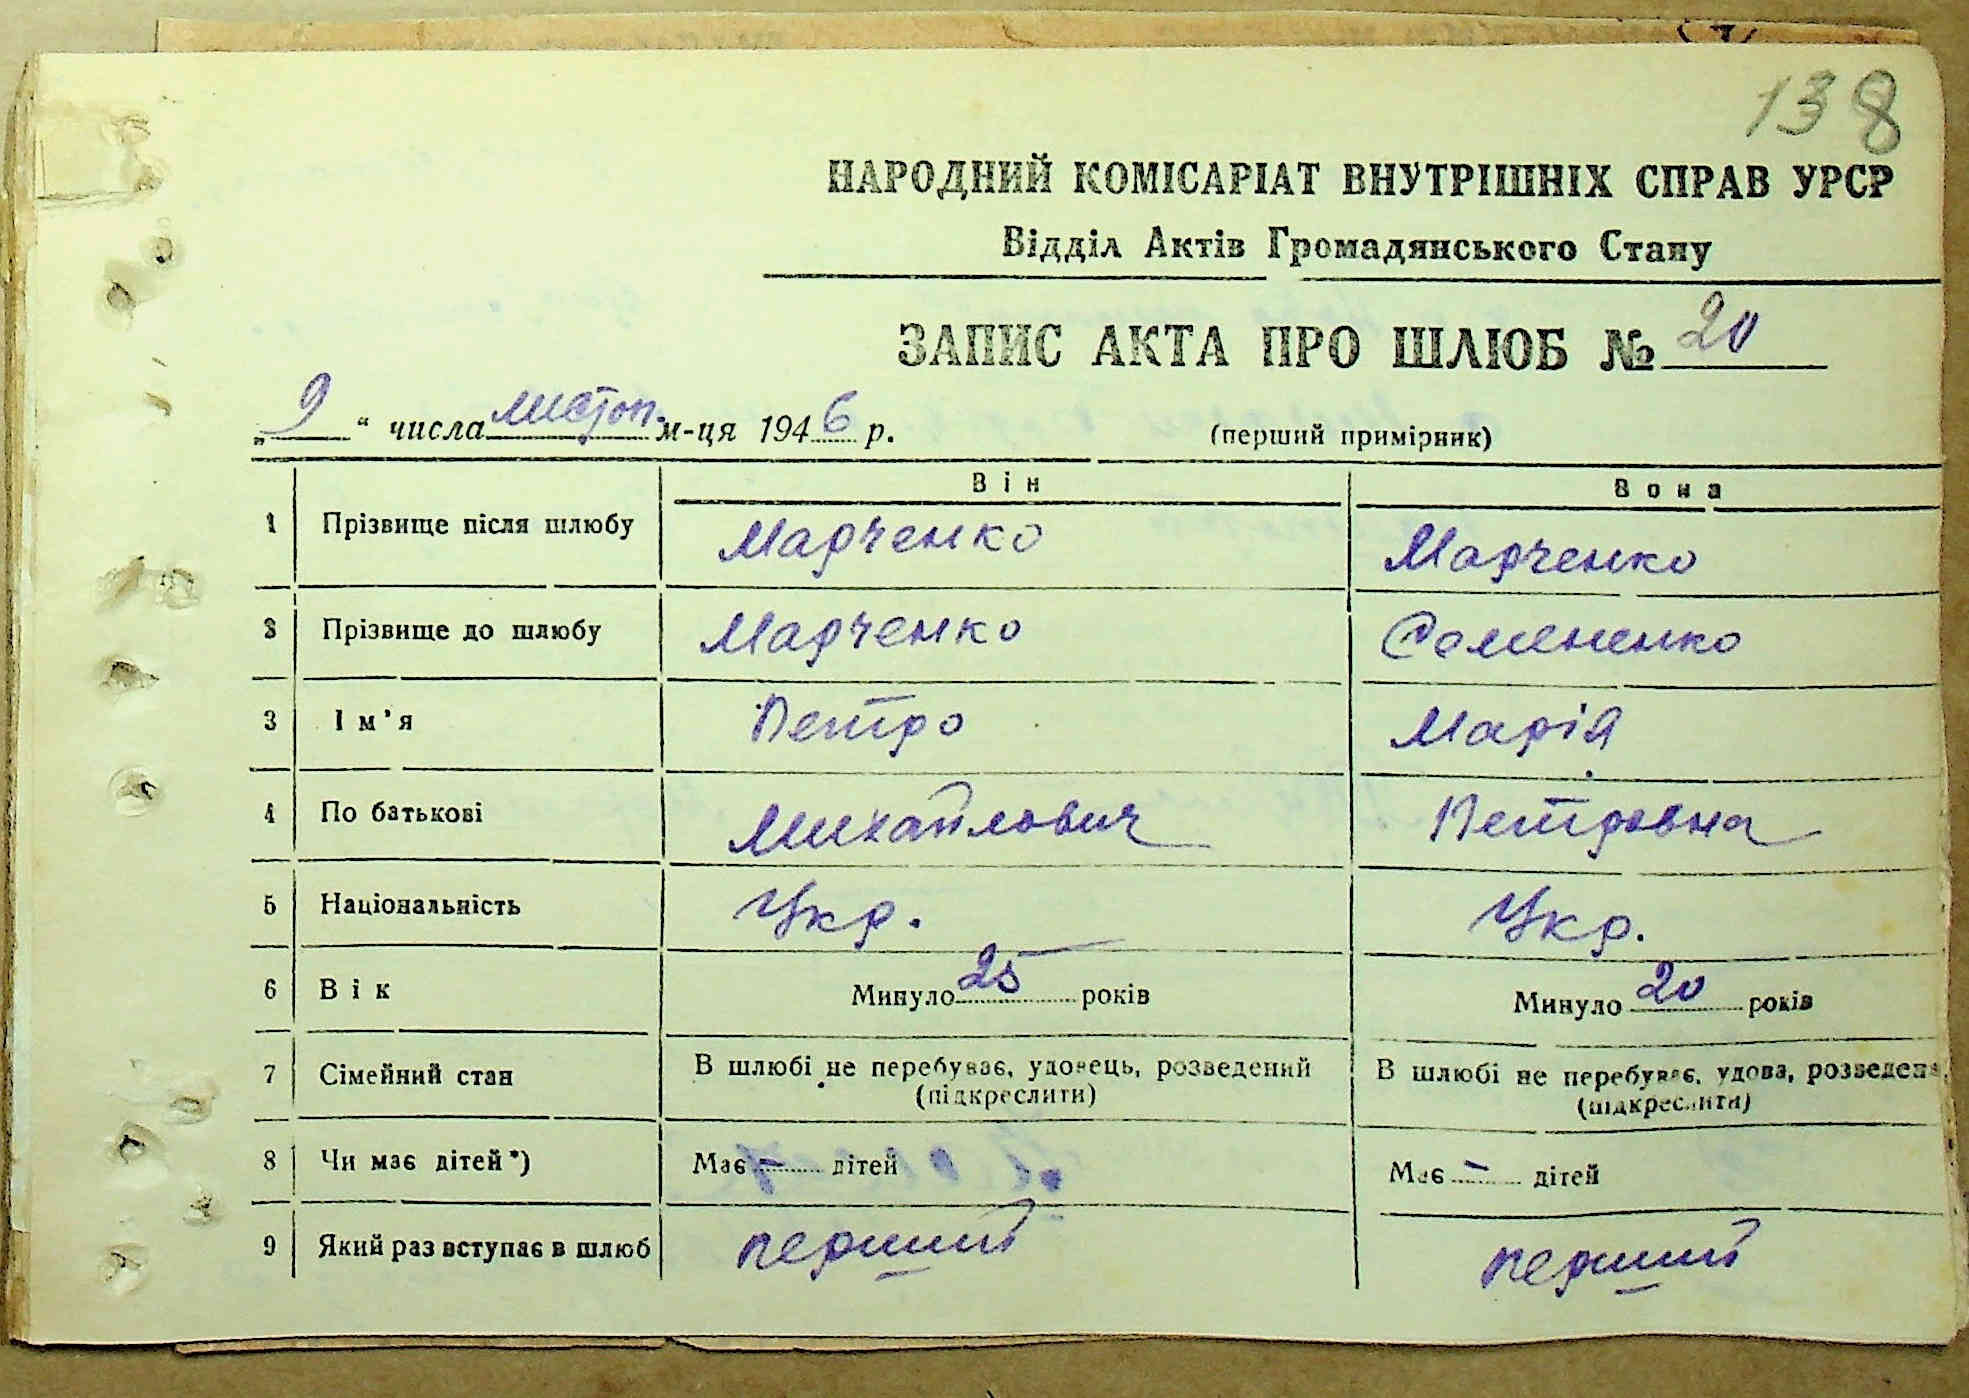 138
НАРОДНИЙ КОМІСАРІАТ ВНУТРІШНІХ СПРАВ УРСР
Відділ Актів Громадянського Стану
ЗАПИС АКТА ПРО ШЛЮБ № 20
„ 9 “ числа листоп. м-ця 1946 р. (перший примірник)
Він Вона
1 Прізвище після шлюбу Марченко Марченко
2 Прізвище до шлюбу Марченко Семененко
3 Ім’я Петро Марія
4 По батькові Михайлович Петровна
5 Національність Укр. Укр.
6 Вік Минуло 25 років Минуло 20 років
7 Сімейний стан В шлюбі не перебуває, удовець, розведений В шлюбі не перебуває, удова, розведена,
(підкреслити) (підкреслити)
8 Чи має дітей*) Має – дітей Має – дітей
9 Який раз вступає в шлюб перший перший